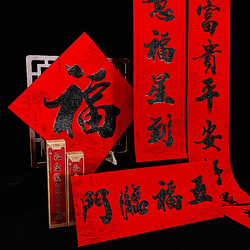 福
富貴平安
意福星到
門臨福五